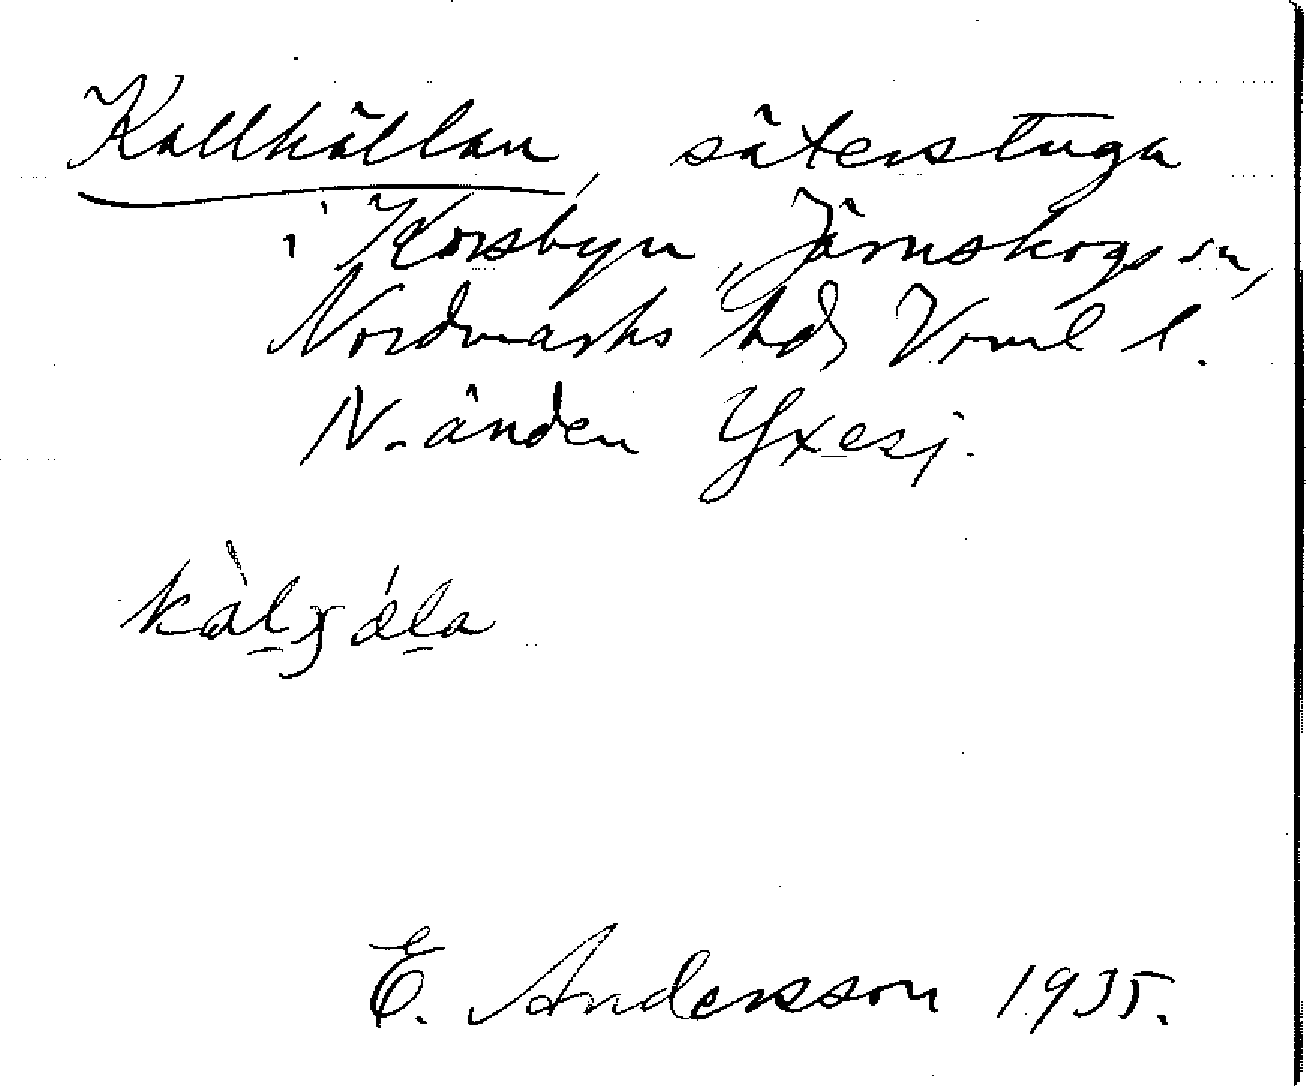 Kallkällan, säterstuga
i Korsbyn, Järnskogs sn,
Nordmarks hd, Vrml l.
N. änden Yxesj.
E. Andersson 1935.